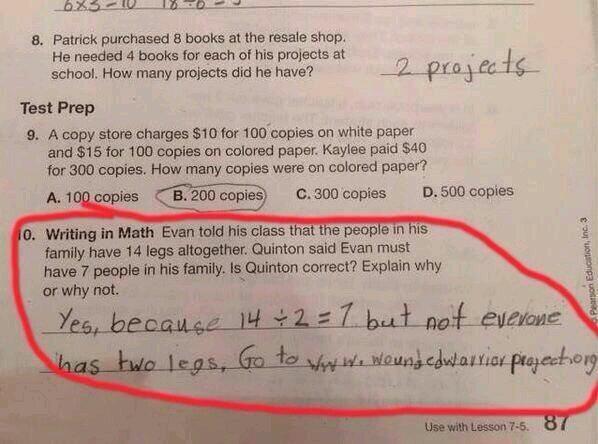 8. Patrick purchased 8 books at the resale shop.
He needed 4 books for each of his projects at
school. How many projects did he have?
2 projects
Test Prep
9. A copy store charges $10 for 100 copies on white paper
and $15 for 100 copies on colored paper. Kaylee paid $40
for 300 copies. How many copies were on colored paper?
A. 100 copies B. 200 copies C. 300 copies D. 500 copies
10. Writing in Math Evan told his class that the people in his
family have 14 legs altogether. Quinton said Evan must
have 7 people in his family. Is Quinton correct? Explain why
or why not.
Yes, because 14 ÷ 2 = 7 but not everyone
has two legs, Go to www.woundedwarriorproject.org
Pearson Education, Inc. 3
Use with Lesson 7-5. 87